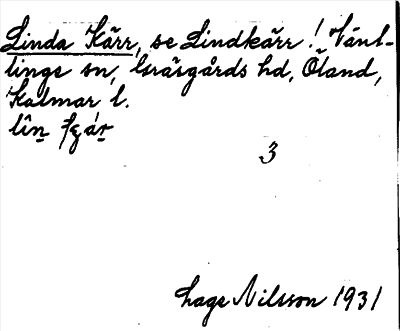 Linda Kärr, se Lindkärr! Vänt-
linge sn, Gräsgårds hd, Öland,
Kalmar l.
3
Hage Nilsson 1931